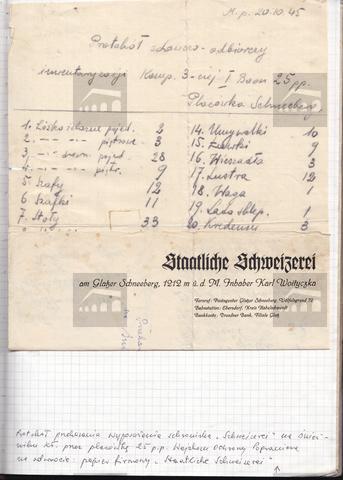 M. p. 20.10.45
Protokół zdawczo-odbiorczy
inwentaryzacji Komp. 3-ciej I Baon 25 pp.
Placówka Schneeberg
1. Łóżko żelazne pojed. 2
2. —"— —"— piętrowe 3
3. —"— drewn. pojed. 28
4. —"— —"— piętr. 9
5. Szafy 12
6. Szafki 11
7. Stoły 33
14. Umywalki 10
15. Zlewki 9
16. Wieszadła 3
17. Lustra 12
18. Waga 1
19. Lada sklep. 1
20. Kredensy 3
Staatliche Schweizerei
am Glatzer Schneeberg, 1212 m ü. d. M. Inhaber Karl Woityczka
Fernruf: Postagentur Glatzer Schneeberg, Wölfelsgrund 72
Bahnstation: Ebersdorf, Kreis Habelschwerdt
Bankkonto: Dresdner Bank, Filiale Glatz
Protokół przekazania wyposażenia schroniska „Schweizerei" na Śnież-
niku Kł. przez placówkę 25 p.p. Wojskom Ochrony Pogranicza
na odwrocie: papier firmowy „Staatliche Schweizerei"